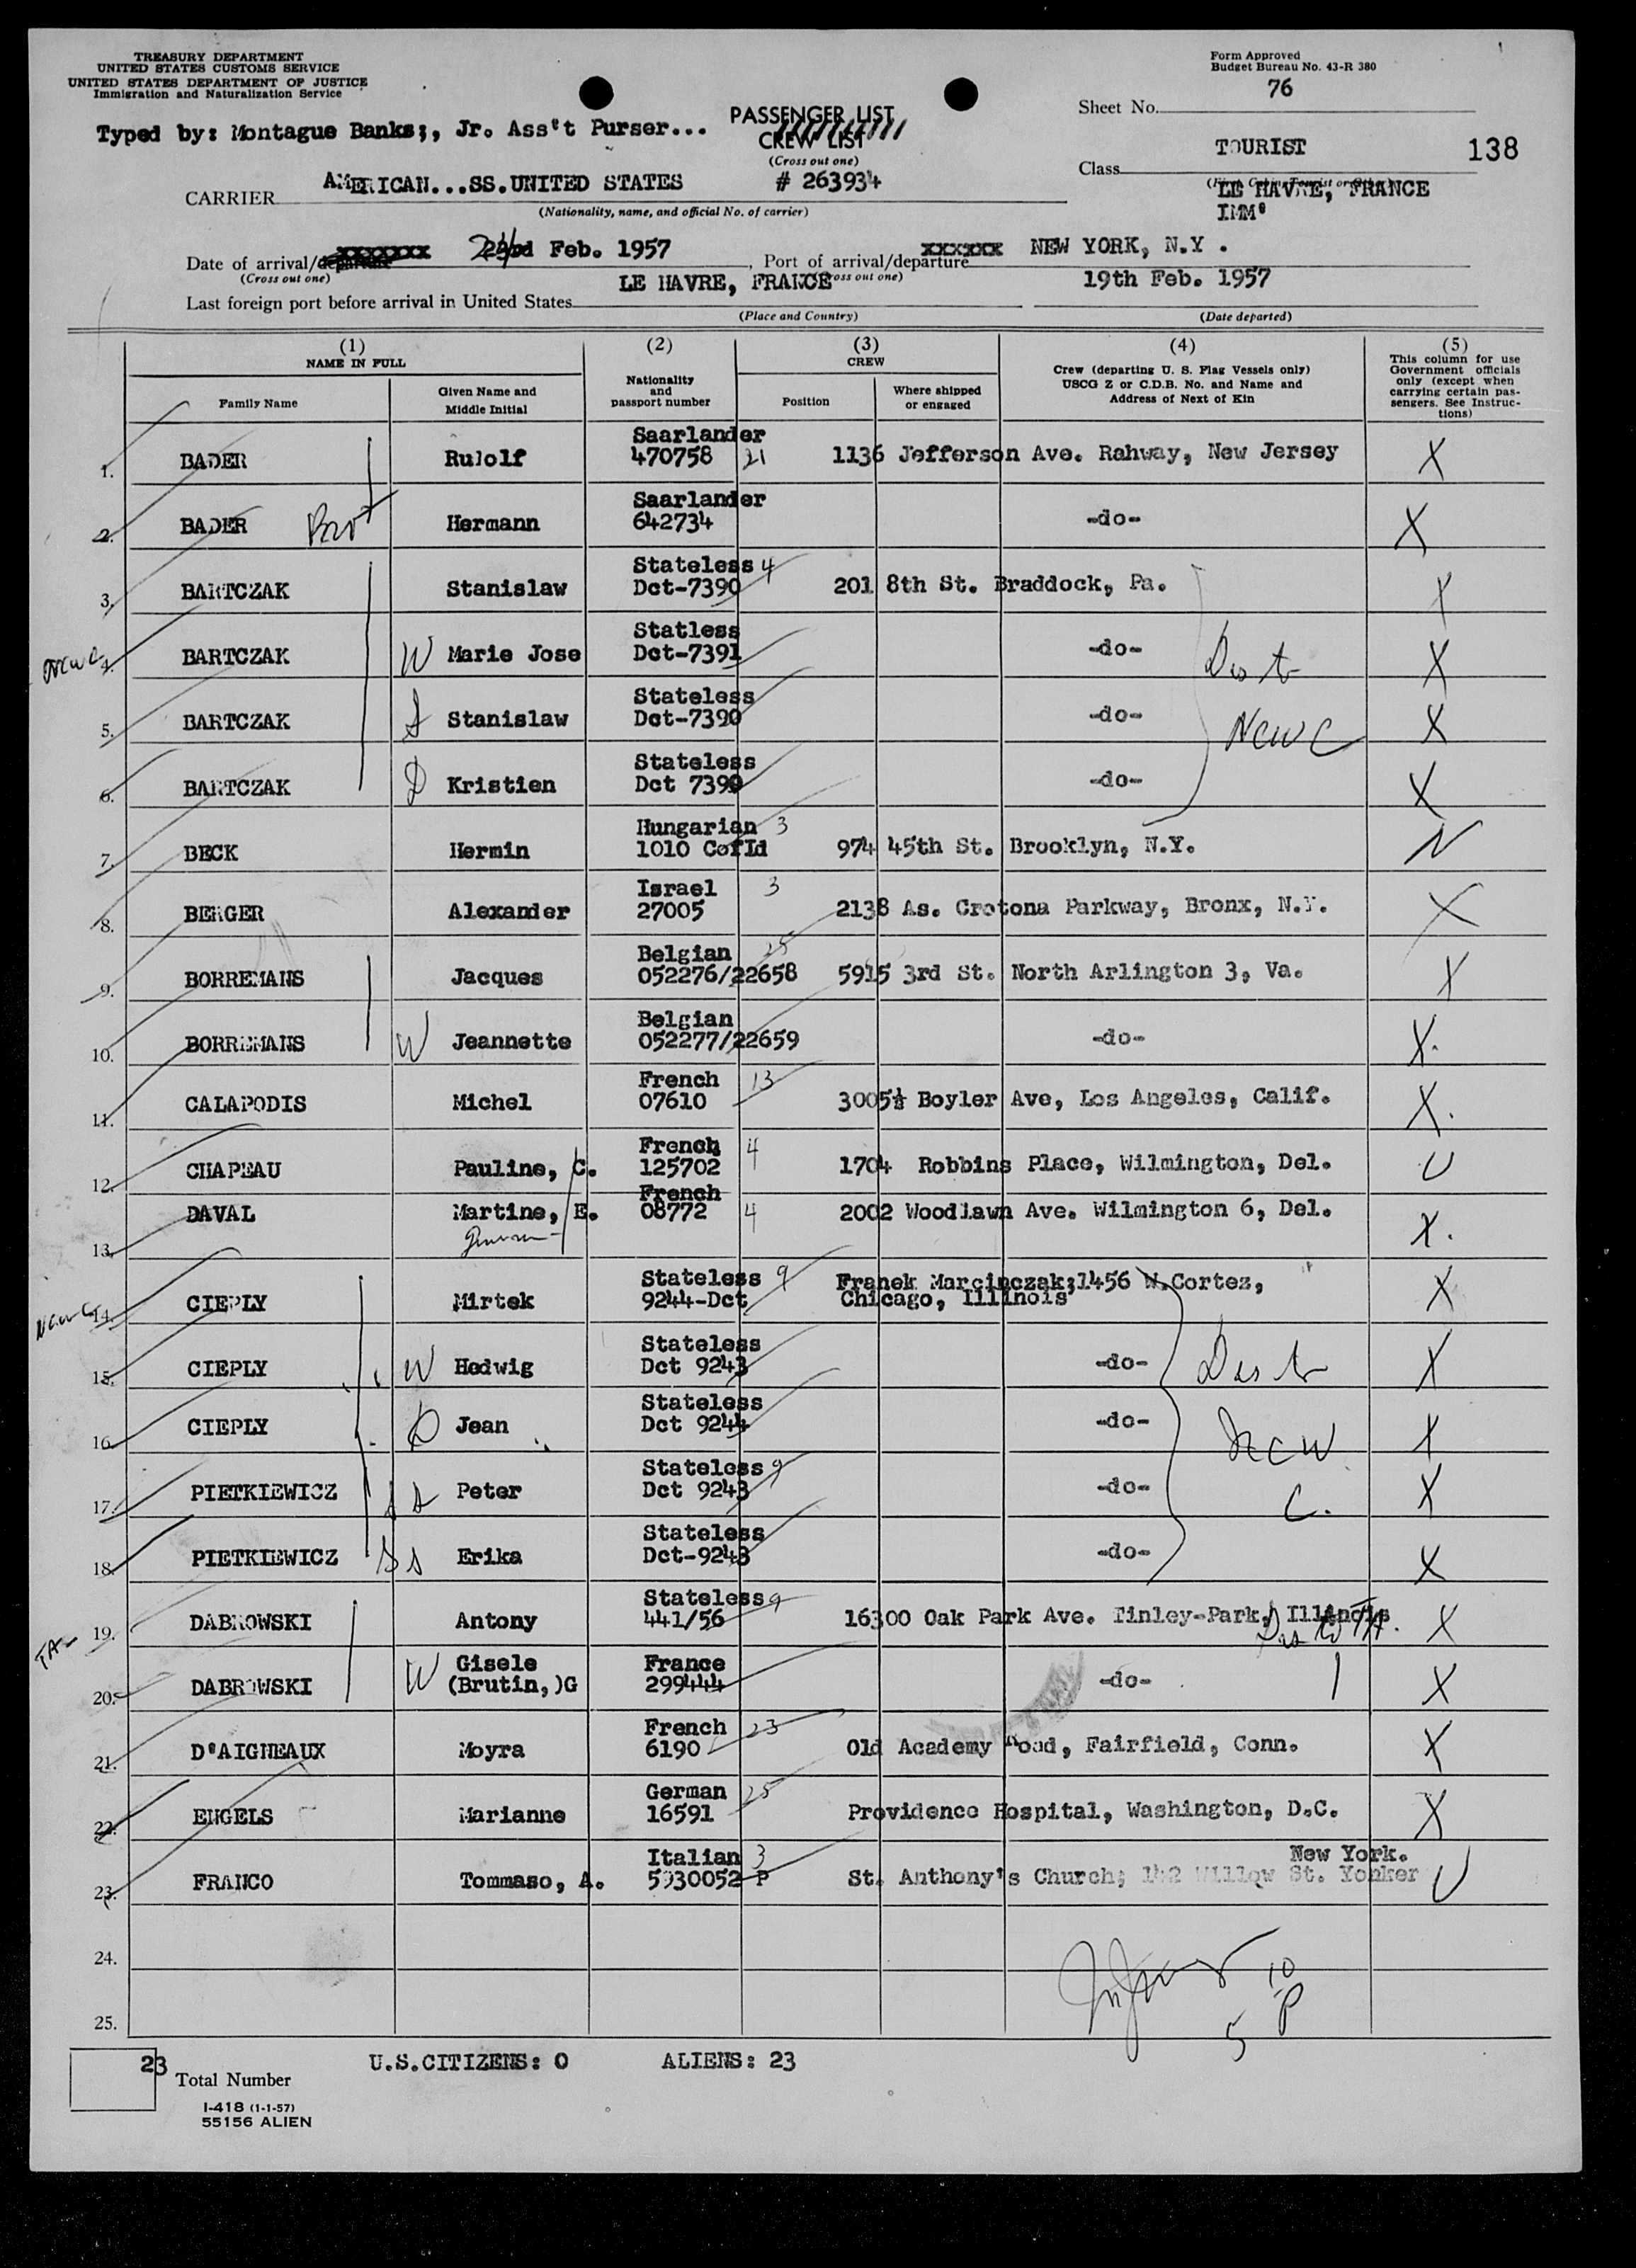 TREASURY DEPARTMENT
UNITED STATES CUSTOMS SERVICE
UNITED STATES DEPARTMENT OF JUSTICE
Immigration and Naturalization Service
Form Approved
Budget Bureau No. 43-R 380
Typed by: Montague Banks;, Jr. Ass't Purser...
PASSENGER LIST
CREW LIST
(Cross out one)
Sheet No. 76
Class TOURIST 138
CARRIER AMERICAN...SS.UNITED STATES # 263934
(Nationality, name, and official No. of carrier)
LE HAVRE, FRANCE
IMM'
Date of arrival/departure 24 Feb. 1957, Port of arrival/departure NEW YORK, N.Y .
(Cross out one) (Cross out one)
Last foreign port before arrival in United States LE HAVRE, FRANCE 19th Feb. 1957
(Place and Country) (Date departed)
(1) (2) (3) (4) (5)
NAME IN FULL
Family Name
Given Name and Middle Initial
Nationality and passport number
CREW
Position
Where shipped or engaged
Crew (departing U. S. Flag Vessels only) USCG Z or C.D.B. No. and Name and Address of Next of Kin
This column for use Government officials only (except when carrying certain passengers. See Instructions)
1. BADER Rudolf Saarlander 470758 21 1136 Jefferson Ave. Rahway, New Jersey X
2. BADER Bro Hermann Saarlander 642734 -do- X
3. BARTCZAK Stanislaw Stateless 4 Dct-7390 201 8th St. Braddock, Pa. X
NCWC 4. BARTCZAK W Marie Jose Statless Dct-7391 -do- X
5. BARTCZAK S Stanislaw Stateless Dct-7390 -do- NCWC X
6. BARTCZAK D Kristien Stateless Dct 7390 -do- X
7. BECK Hermin Hungarian 3 1010 CofId 974 45th St. Brooklyn, N.Y. N
8. BERGER Alexander Israel 3 27005 2138 As. Crotona Parkway, Bronx, N.Y. X
9. BORREMANS Jacques Belgian 25 052276/22658 5915 3rd St. North Arlington 3, Va. X
10. BORREMANS W Jeannette Belgian 052277/22659 -do- X.
11. CALAPODIS Michel French 13 07610 3005½ Boyler Ave, Los Angeles, Calif. X.
12. CHAPEAU Pauline, C. French 4 125702 1704 Robbins Place, Wilmington, Del. U
13. DAVAL Martine, E. French 08772 4 2002 Woodlawn Ave. Wilmington 6, Del. X.
NCWC 14. CIEPLY Mirtek Stateless 9 9244-Dct Franek Marcinczak;1456 W.Cortez, Chicago, Illinois X
15. CIEPLY W Hedwig Stateless Dct 9243 -do- X
16. CIEPLY D Jean Stateless Dct 9244 -do- NCW X
17. PIETKIEWICZ S S Peter Stateless 9 Dct 9243 -do- C. X
18. PIETKIEWICZ S S Erika Stateless Dct-9243 -do- X
19. DABROWSKI Antony Stateless 9 441/56 16300 Oak Park Ave. Tinley-Park, Illinois X
20. DABROWSKI W Gisele (Brutin,)G France 299444 -do- X
21. D'AIGNEAUX Moyra French 23 6190 Old Academy Road, Fairfield, Conn. X
22. ENGELS Marianne German 25 16591 Providence Hospital, Washington, D.C. X
23. FRANCO Tommaso, A. Italian 3 5930052 P St. Anthony's Church; 142 Willow St. Yonker New York. U
24.
25.
10
P
5
23 Total Number
U.S.CITIZENS: 0 ALIENS: 23
I-418 (1-1-57)
55156 ALIEN